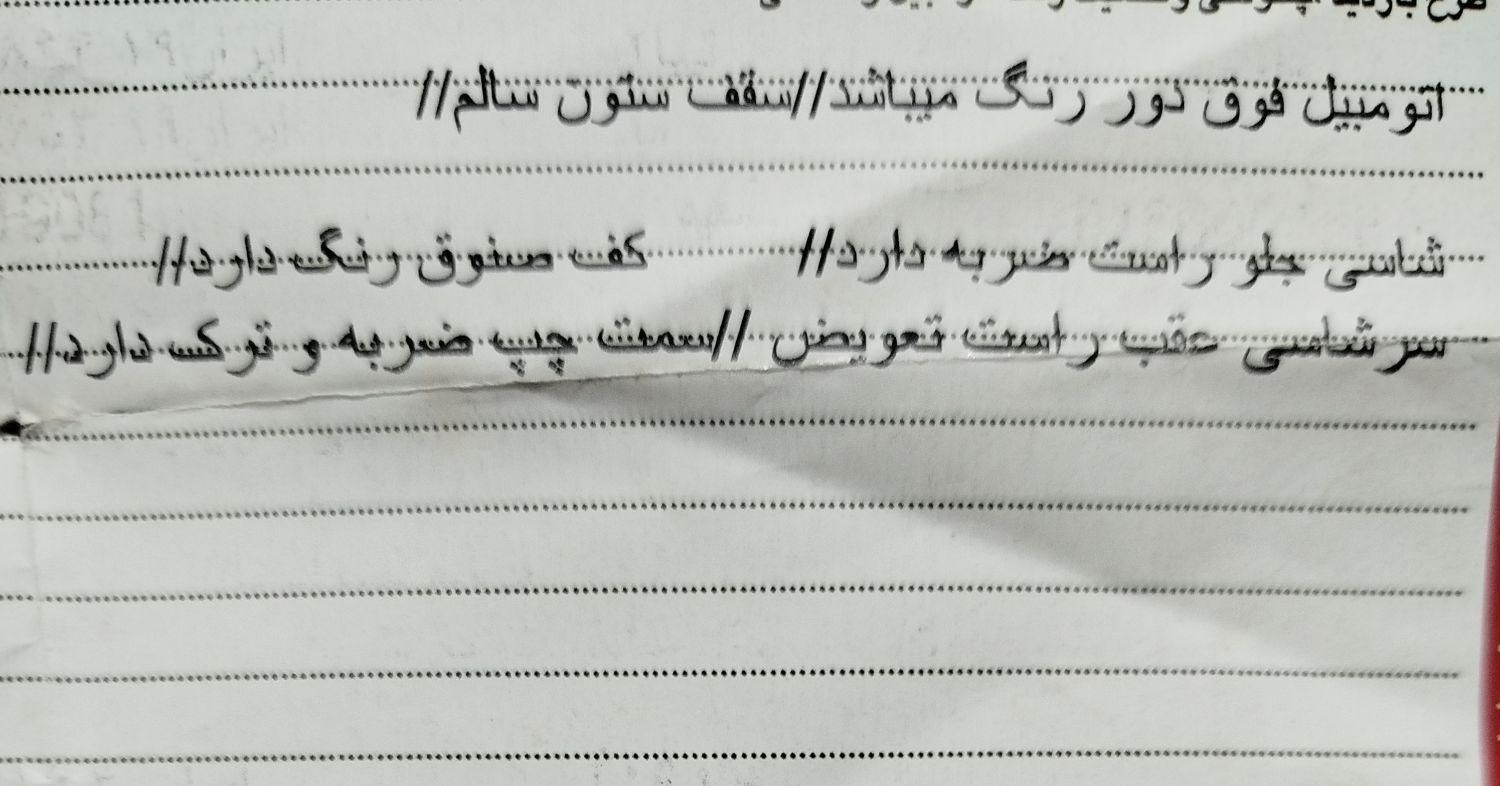 اتومبیل فوق دور رنگ میباشد//سقف ستون سالم//
شاسی جلو راست ضربه دارد// کف صندوق رنگ دارد//
سرشاسی عقب راست تعویض //سمت چپ ضربه و ترک دارد//